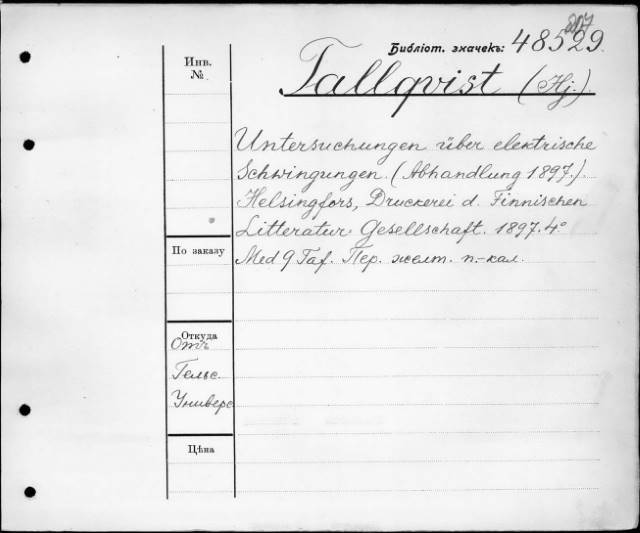 Библіот. значекъ: 48529.
Инв.
№
Tallqvist (Hj.)
Untersuchungen über elektrische
Schwingungen. (Abhandlung 1897.)
Helsingfors, Druckerei d. Finnischen
Litteratur Gesellschaft. 1897. 4°
По заказу
Med 9 Taf. Пер. желт. п.-кал.
Откуда
Отъ
Гельс.
Универс
Цѣна